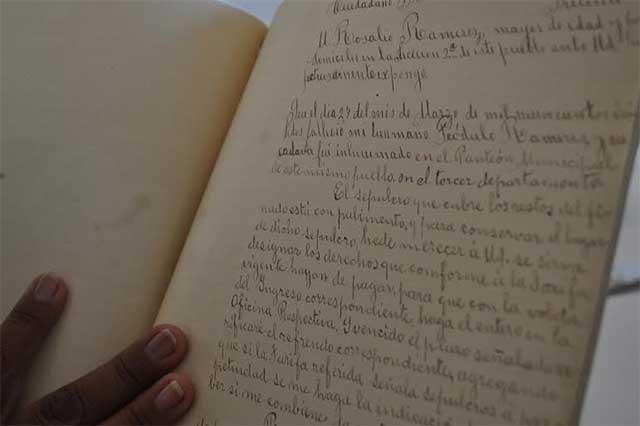 Ciudadano Pre
U. Rosalio Ramirez, mayor de edad y
domicilio en la sección 2ª de este pueblo ante Ud.
expongo.
Que el dia 23 del mes de Marzo de mil novecientos
dos falleció mi hermano Teódulo Ramirez, y su
cadaver fué inhumado en el Panteón Municipal
de este mismo pueblo, en el tercer departamento
El sepulcro que cubre los restos del fi-
nado está con pabimento, y para conservar el lugar
de dicho sepulcro, hede merecer á Ud. se sirva
designar los derechos que conforme á la Tarifa
vigente hayan de pagar, para que con la voleta
del Ingreso correspondiente haga el entero en la
Oficina Respectiva. Y vencido el plazo señalado ve-
rificaré el refrendo correspondiente, agregando
que si la Tarifa referida señala sepulcros a per-
petuidad se me haga la indicación
ber si me combiene